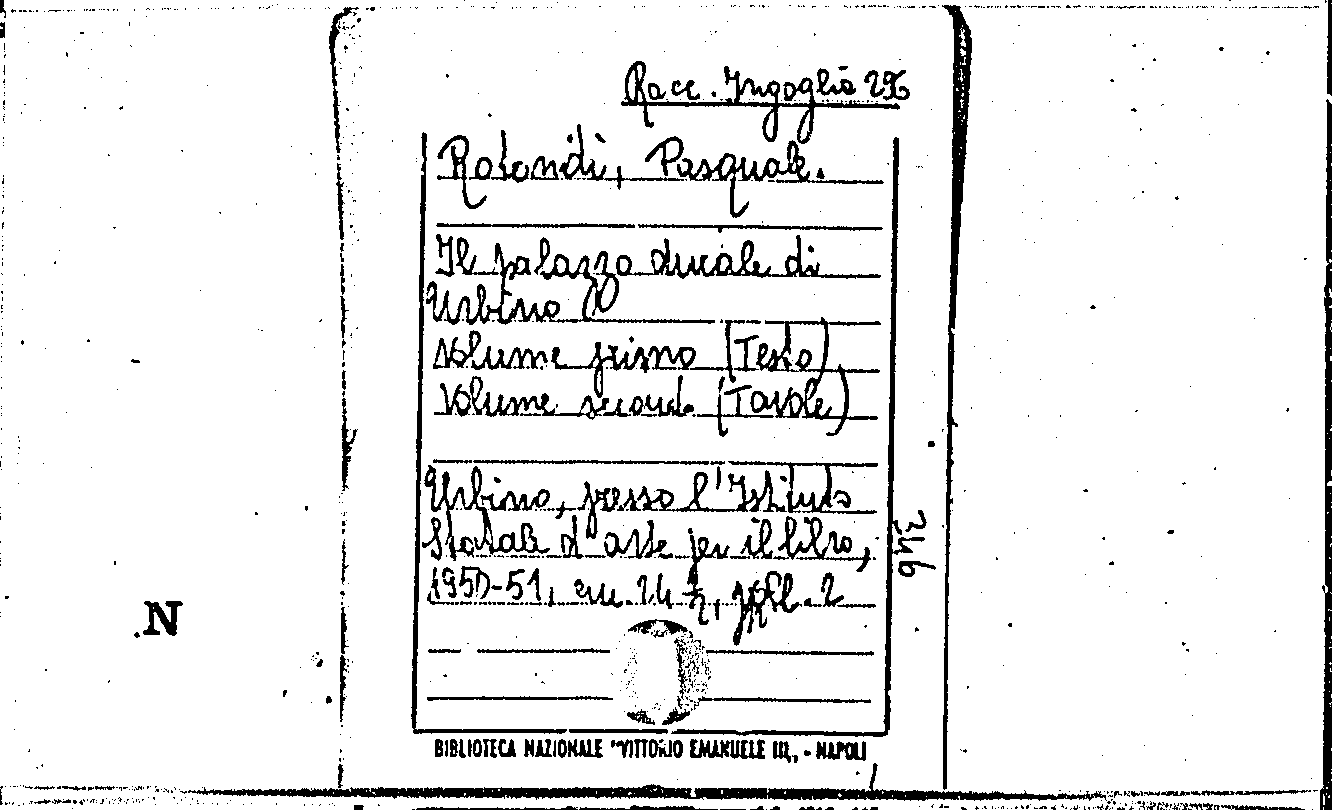 Racc. Ingoglia 296
Rotondi, Pasquale.
Il palazzo ducale di
Urbino
Volume primo (Testo)
Volume secondo (Tavole)
Urbino, presso l'Istituto
Statale d'arte per il libro,
1950-51, cm. 24 ½,
346
N
BIBLIOTECA NAZIONALE "VITTORIO EMANUELE III„ - NAPOLI